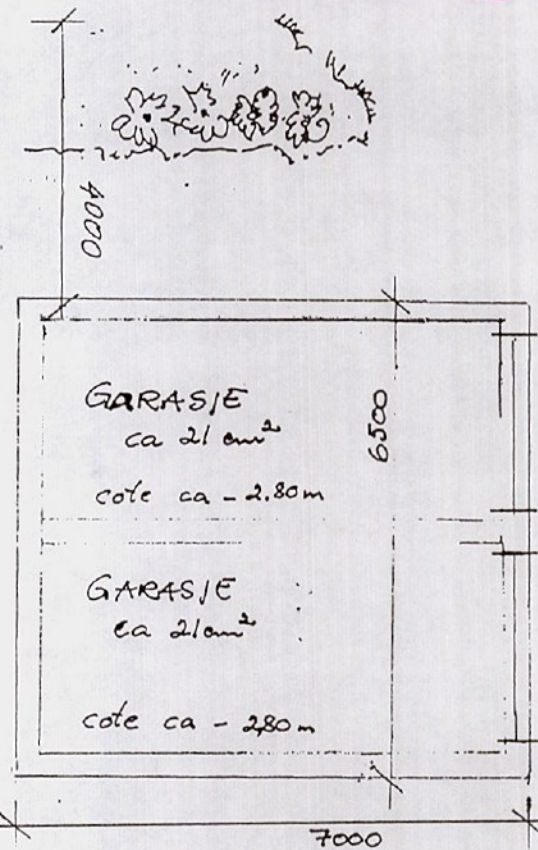 4000
GARASJE
ca 21 cm²
cote ca - 2.80 m
6500
GARASJE
ca 21 cm²
cote ca - 2,80 m
7000